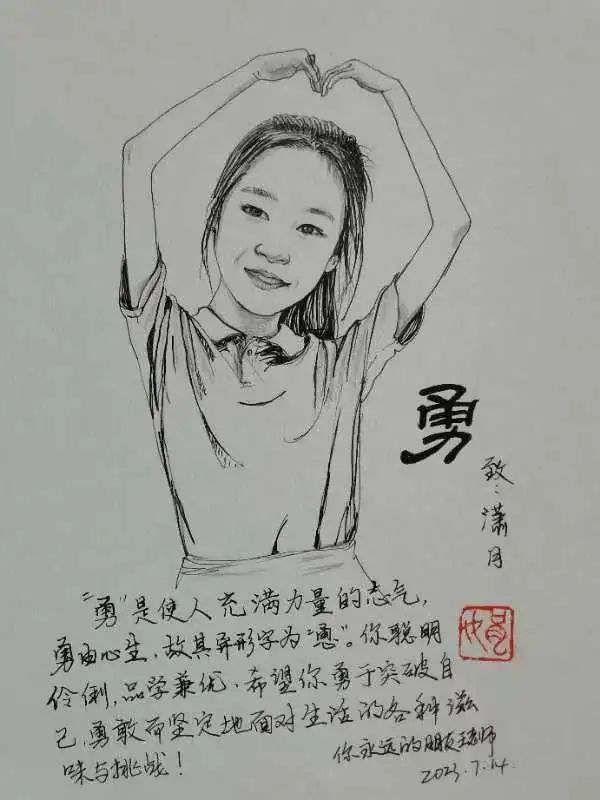 勇
致：潇月
“勇”是使人充满力量的志气，
勇由心生，故其异形字为“恿”。你聪明
伶俐，品学兼优，希望你勇于突破自
己，勇敢而坚定地面对生活的各种滋
味与挑战！
你永远的朋友王老师
2023.7.14.